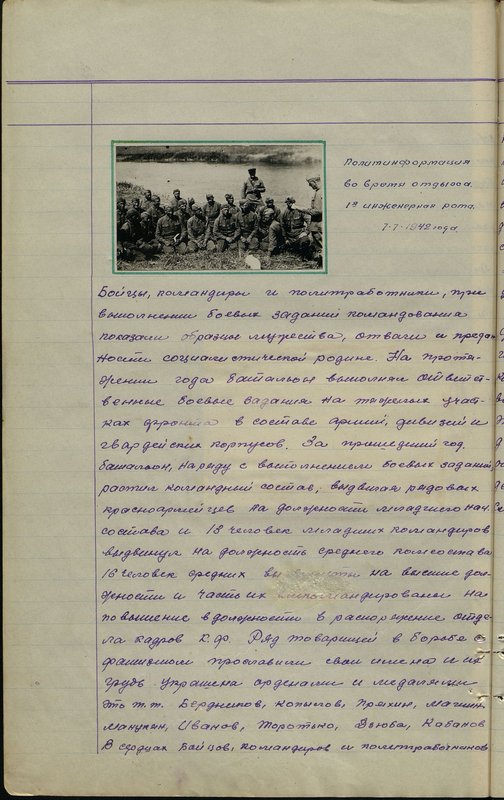 Политинформация
во время отдыха
1я инженерная рота.
7-7-1942 года
Бойцы, командиры и политработники, при
выполнении боевых заданий командования
показали образцы мужества, отваги и предан
ности социалистической родине. На протя-
жении года батальон выполнял ответст-
венные боевые задания на тяжелых участ-
ках фронта в составе армий, дивизей и
гвардейских корпусов. За прошедший год,
батальон, наряду с выполнением боевых заданий
растил командный состав, выдвигая рядовых
красноармейцев на должности младшего нач
состава и 18 человек младших командиров
выдвинул на должность среднего комсостава
16 человек средних на высшие дол-
жности и часть их откомандированы на
повышение в должности в распоряжение отде-
ла кадров К.Ф. Ряд товарищей в борьбе с
фашизмом прославили свои имена и их
грудь украшена орденами и медалями
это т.т. Бердников, Копылов, Пряхин,
Иванов, Торотько, Дзюба, Кабанов
В сердцах бойцов, командиров и политработников